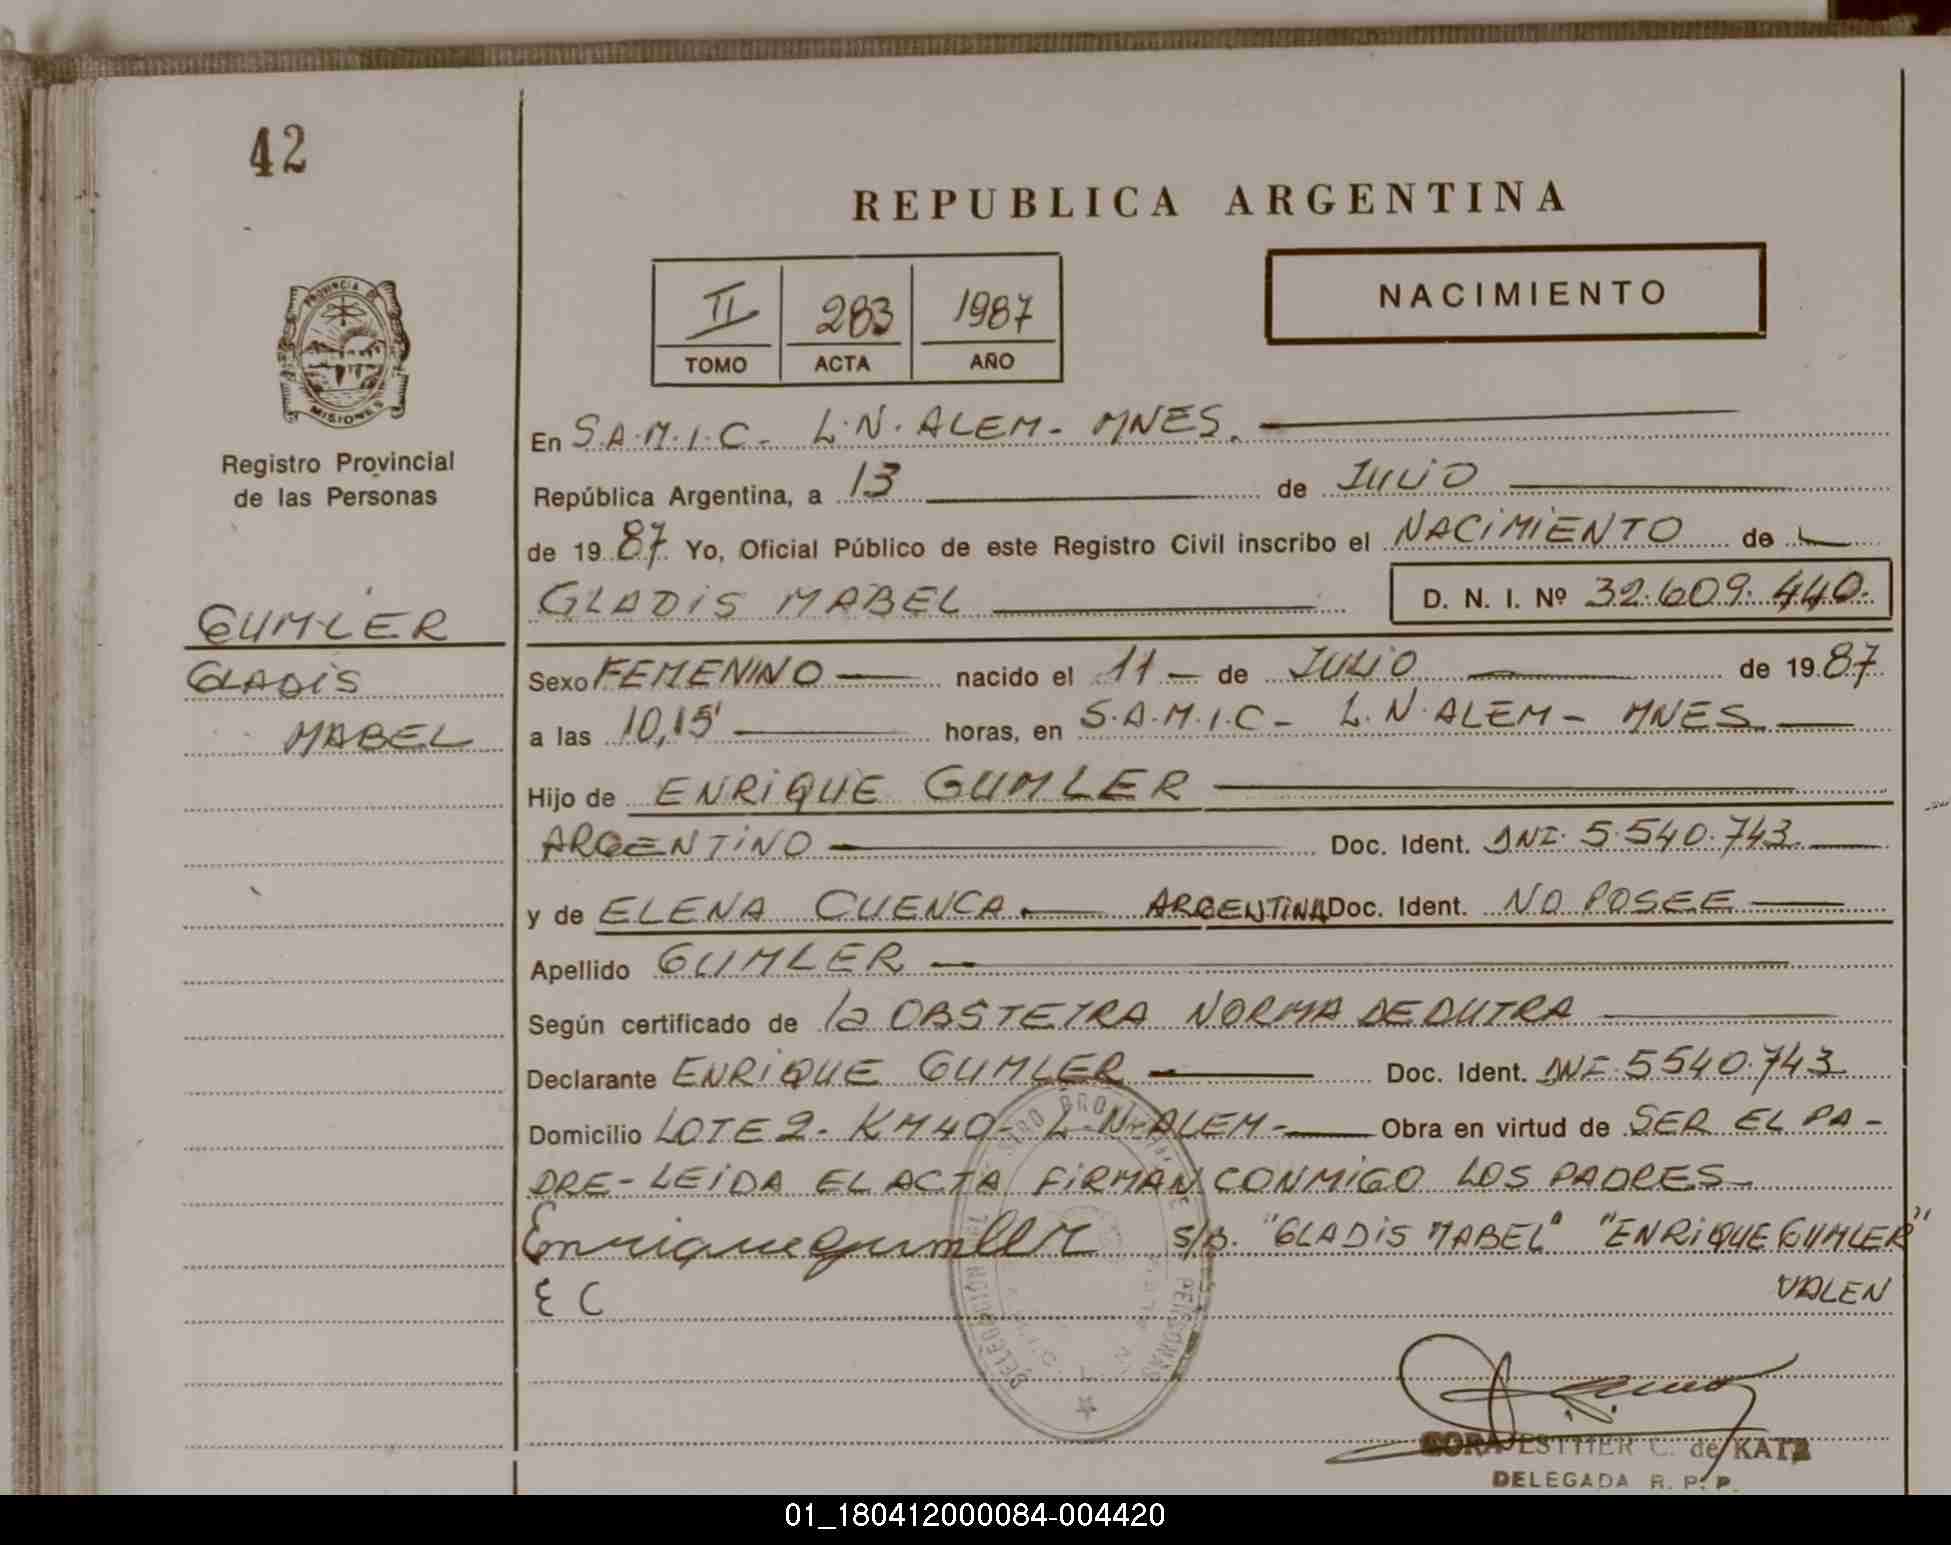 42
REPUBLICA ARGENTINA
II 283 1987
TOMO ACTA AÑO
NACIMIENTO
PROVINCIA DE
MISIONES
Registro Provincial
de las Personas
GUMLER
GLADIS
MABEL
En S.A.M.I.C- L.N. ALEM- MNES.
República Argentina, a 13 de JULIO
de 19 87 Yo, Oficial Público de este Registro Civil inscribo el NACIMIENTO de
GLADIS MABEL D. N. I. Nº 32.609.440.
Sexo FEMENINO nacido el 11 - de JULIO de 19 87
a las 10,15' horas, en S.A.M.I.C- L.N. ALEM- MNES
Hijo de ENRIQUE GUMLER
ARGENTINO Doc. Ident. DNI. 5.540.743
y de ELENA CUENCA. ARGENTINA Doc. Ident. NO POSEE
Apellido GUMLER
Según certificado de la OBSTETRA NORMA DEDUTRA
Declarante ENRIQUE GUMLER Doc. Ident. DNI 5540.743
Domicilio LOTE 2- KM40- L.N. ALEM- Obra en virtud de SER EL PA-
DRE- LEIDA EL ACTA FIRMAN CONMIGO LOS PADRES
Enrique gumller s/b. "GLADIS MABEL" "ENRIQUE GUMLER"
E C VALEN
CORA ESTHER C. de KATZ
DELEGADA R. P. P.
01_180412000084-004420